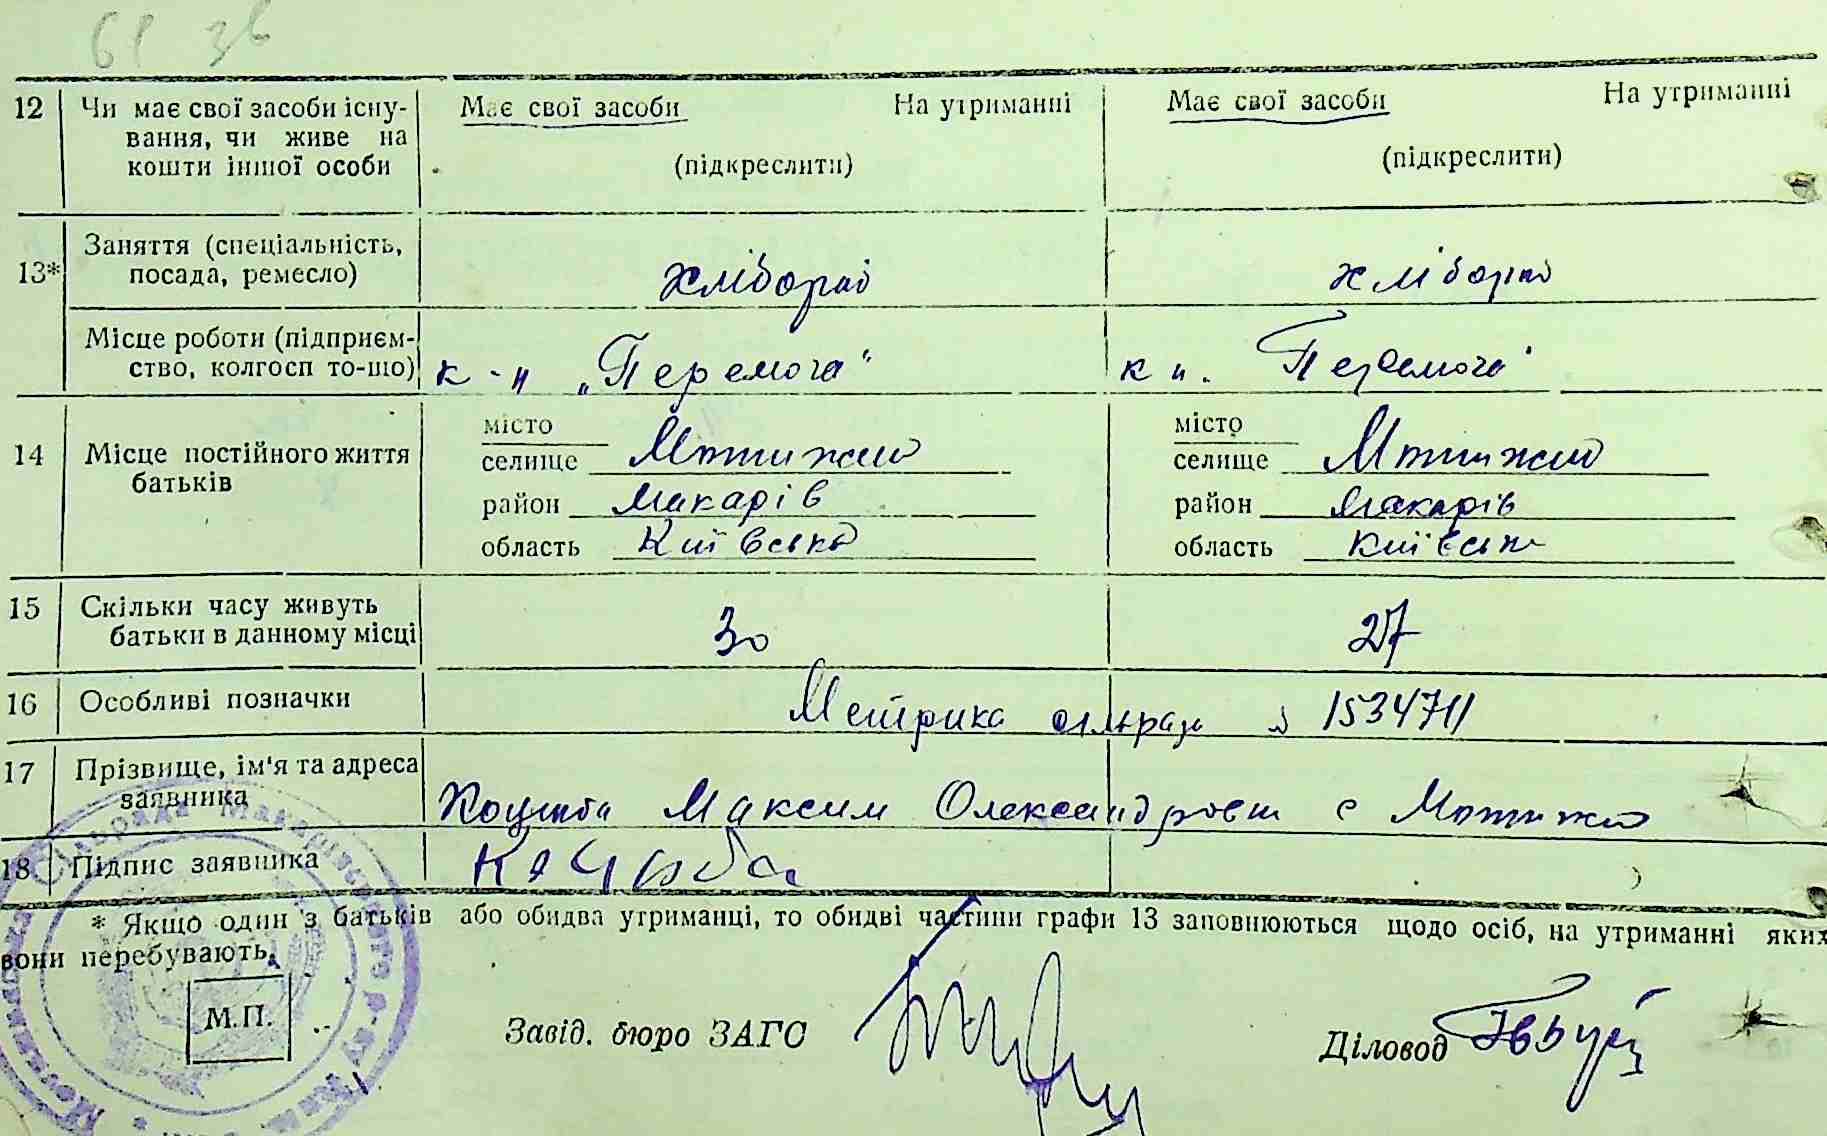 61 зв
12 Чи має свої засоби існу- Має свої засоби На утриманні Має свої засоби На утриманні
вання, чи живе на
кошти іншої особи (підкреслити) (підкреслити)
13* Заняття (спеціальність,
посада, ремесло) хлібороб хлібороб
Місце роботи (підприєм-
ство, колгосп то-що) к-п „Перемога" к п. Перемога"
14 Місце постійного життя
батьків
місто місто
селище Мотижин селище Мотижин
район Макарів район Макарів
область Київська область Київська
15 Скільки часу живуть
батьки в данному місці 30 27
16 Особливі позначки Метрика 1534711
17 Прізвище, ім'я та адреса
заявника Коцюба Максим Олександрович с Мотижин
18 Підпис заявника Коцюба
* Якщо один з батьків або обидва утриманці, то обидві частини графи 13 заповнюються щодо осіб, на утриманні яких
вони перебувають.
М.П.
Завід. бюро ЗАГС Діловод